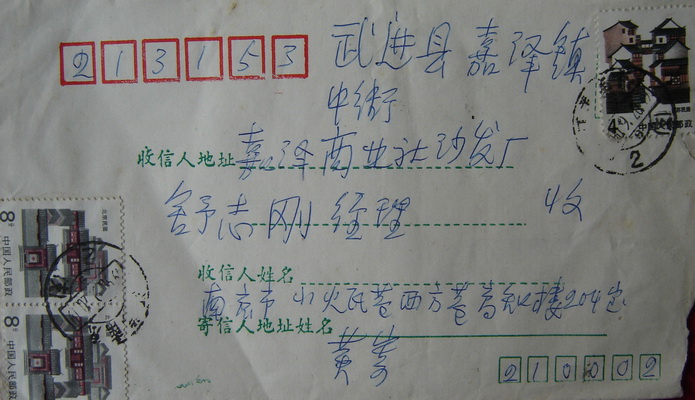 213153
武进县嘉泽镇
中街
收信人地址 嘉泽商业社沙发厂
舒志刚 经理 收
收信人姓名
南京市小火瓦巷西方巷高知楼204室
寄信人地址姓名
黄
210002
8分
中国人民邮政
北京民居
8分
中国人民邮政
中国人民邮政
2